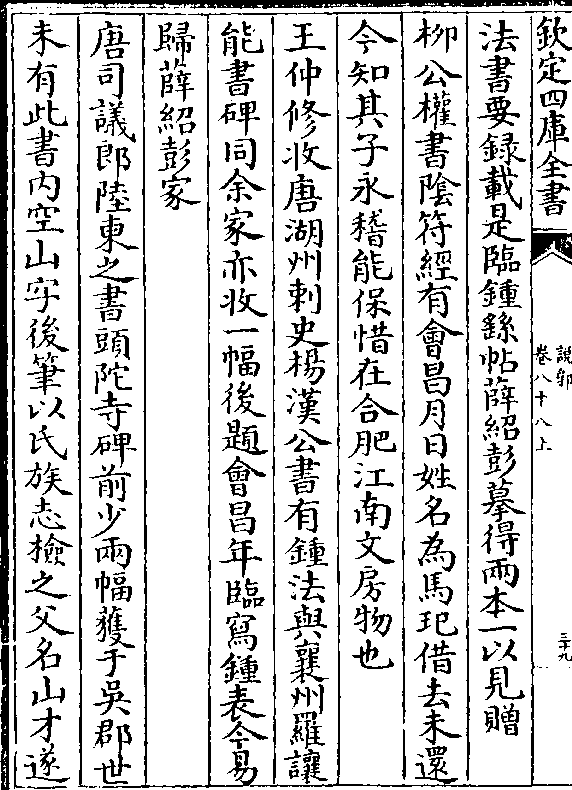 欽定四庫全書
說郛
卷八十八上
三十九
法書要録載是臨鍾繇帖薛紹彭摹得兩本一以見贈
栁公權書陰符經有會昌月日姓名為馬玘借去未還
今知其子永稽能保惜在合肥江南文房物也
王仲修收唐湖州刺史楊漢公書有鍾法與襄州羅讓
能書碑同余家亦收一幅後題會昌年臨寫鍾表今易
歸薛紹彭家
唐司議郎陸東之書頭陀寺碑前少兩幅獲于吳郡世
未有此書内空山字後筆以氏族志檢之父名山才遂